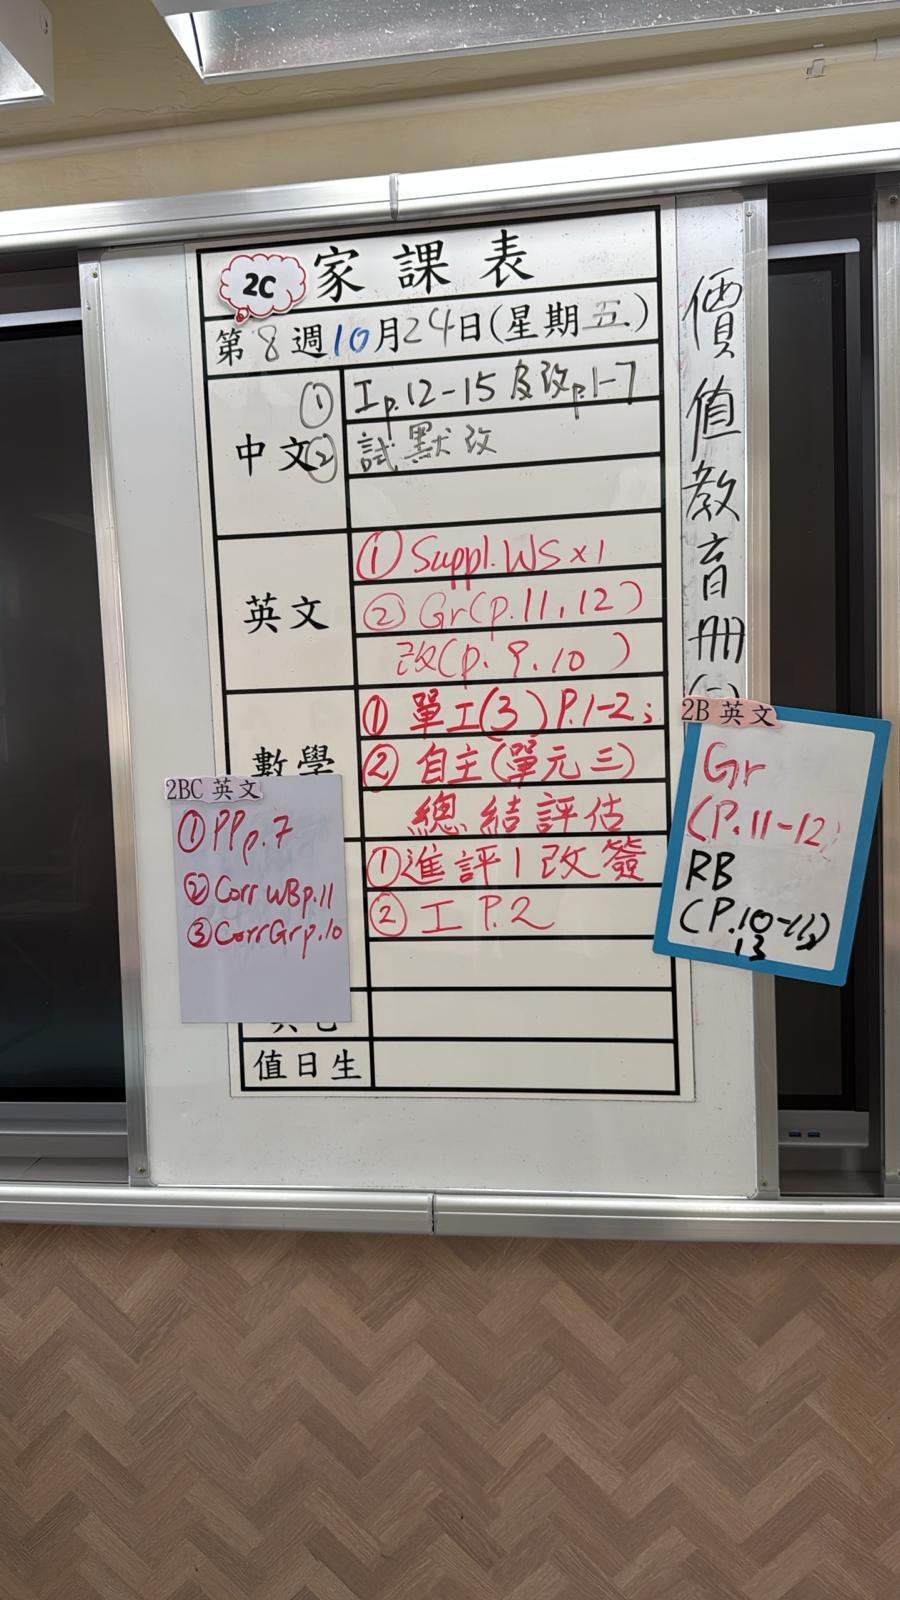 2C 家課表
第8週10月24日(星期五)
中文
① 工p.12-15及改p.1-7
② 試默改
英文
① Suppl. WS x 1
② Gr(p.11,12)
改(p.9,10)
數學
① 單工(3) P.1-2;
② 自主(單元三)
總結評估
① 進評1改發
② 工 P.2
其它
值日生
2BC 英文
① PP p.7
② Corr WB p.11
③ Corr Gr p.10
價值教育冊
2B 英文
Gr
(P.11-12)
RB
(P.10-
13